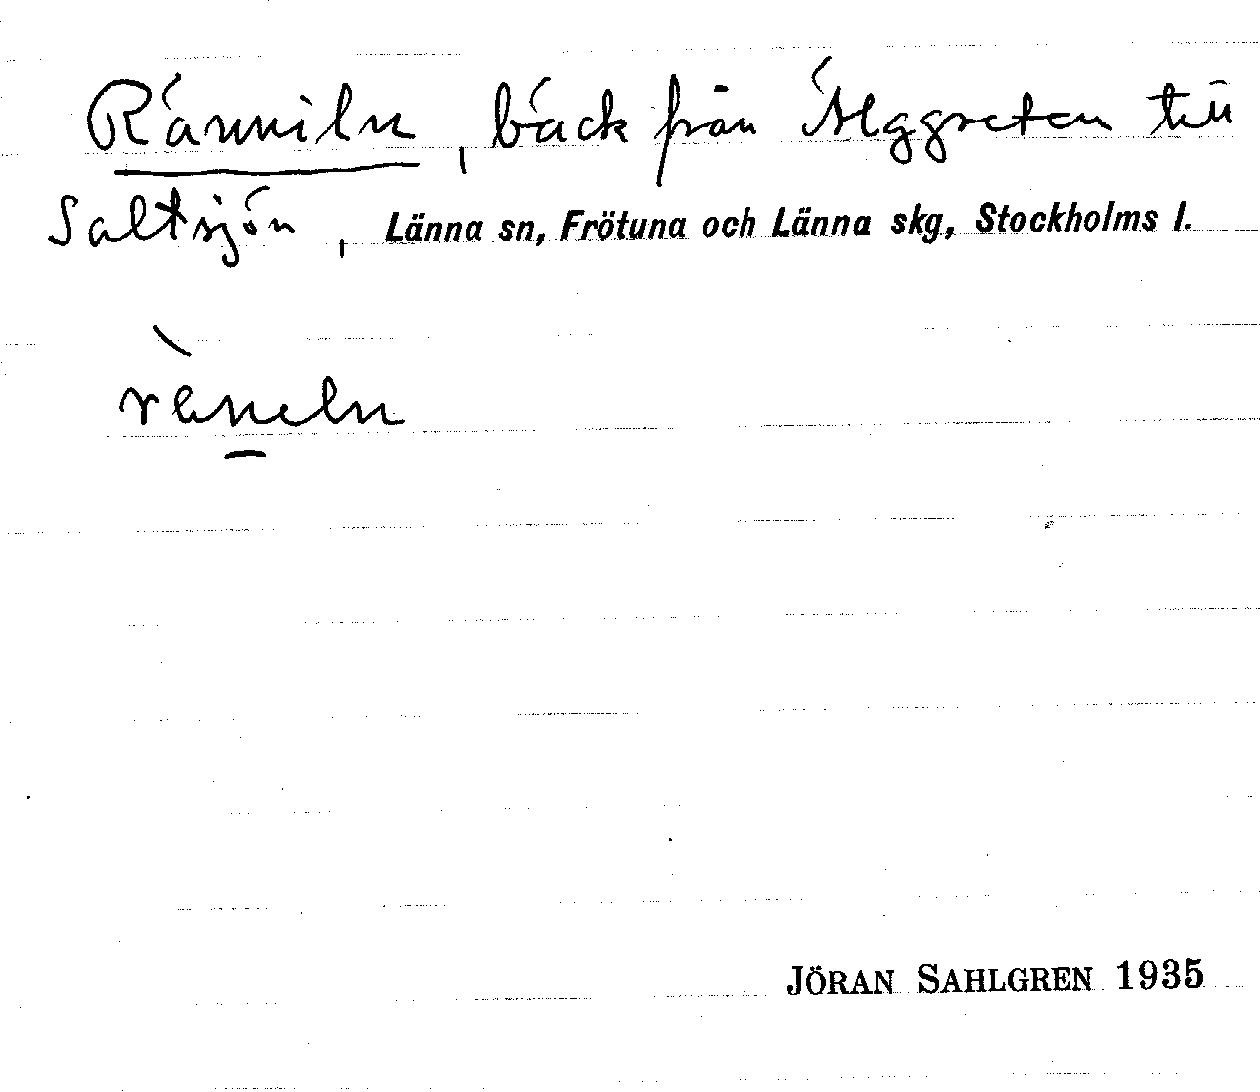 Ränniln, bäck från Älggreten till
Saltsjön, Länna sn, Frötuna och Länna skg, Stockholms l.
JÖRAN SAHLGREN 1935